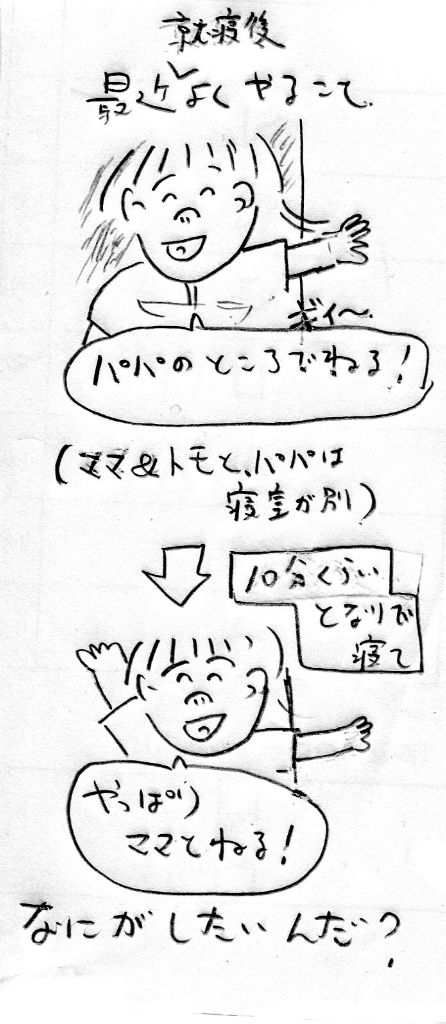 就寝後
最近よくやること。
ギィ〜
パパのところでねる！
(ママ&トモと、パパは
寝室が別)
10分くらい
となりで
寝て
やっぱり
ママとねる！
なにがしたいんだ？